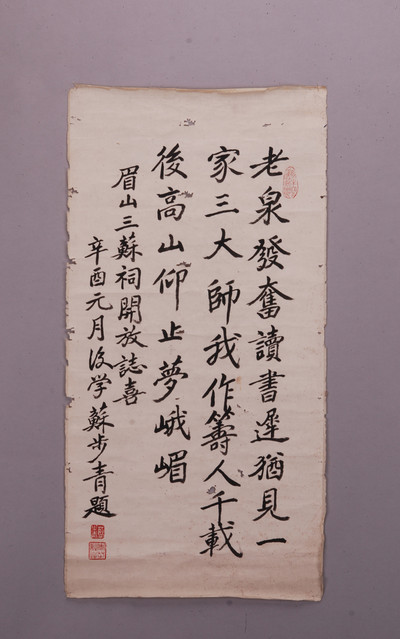 老泉發奮讀書遲猶見一
家三大師我作籌人千載
後高山仰止夢峨嵋
眉山三蘇祠開放誌喜
辛酉元月後学蘇步青題